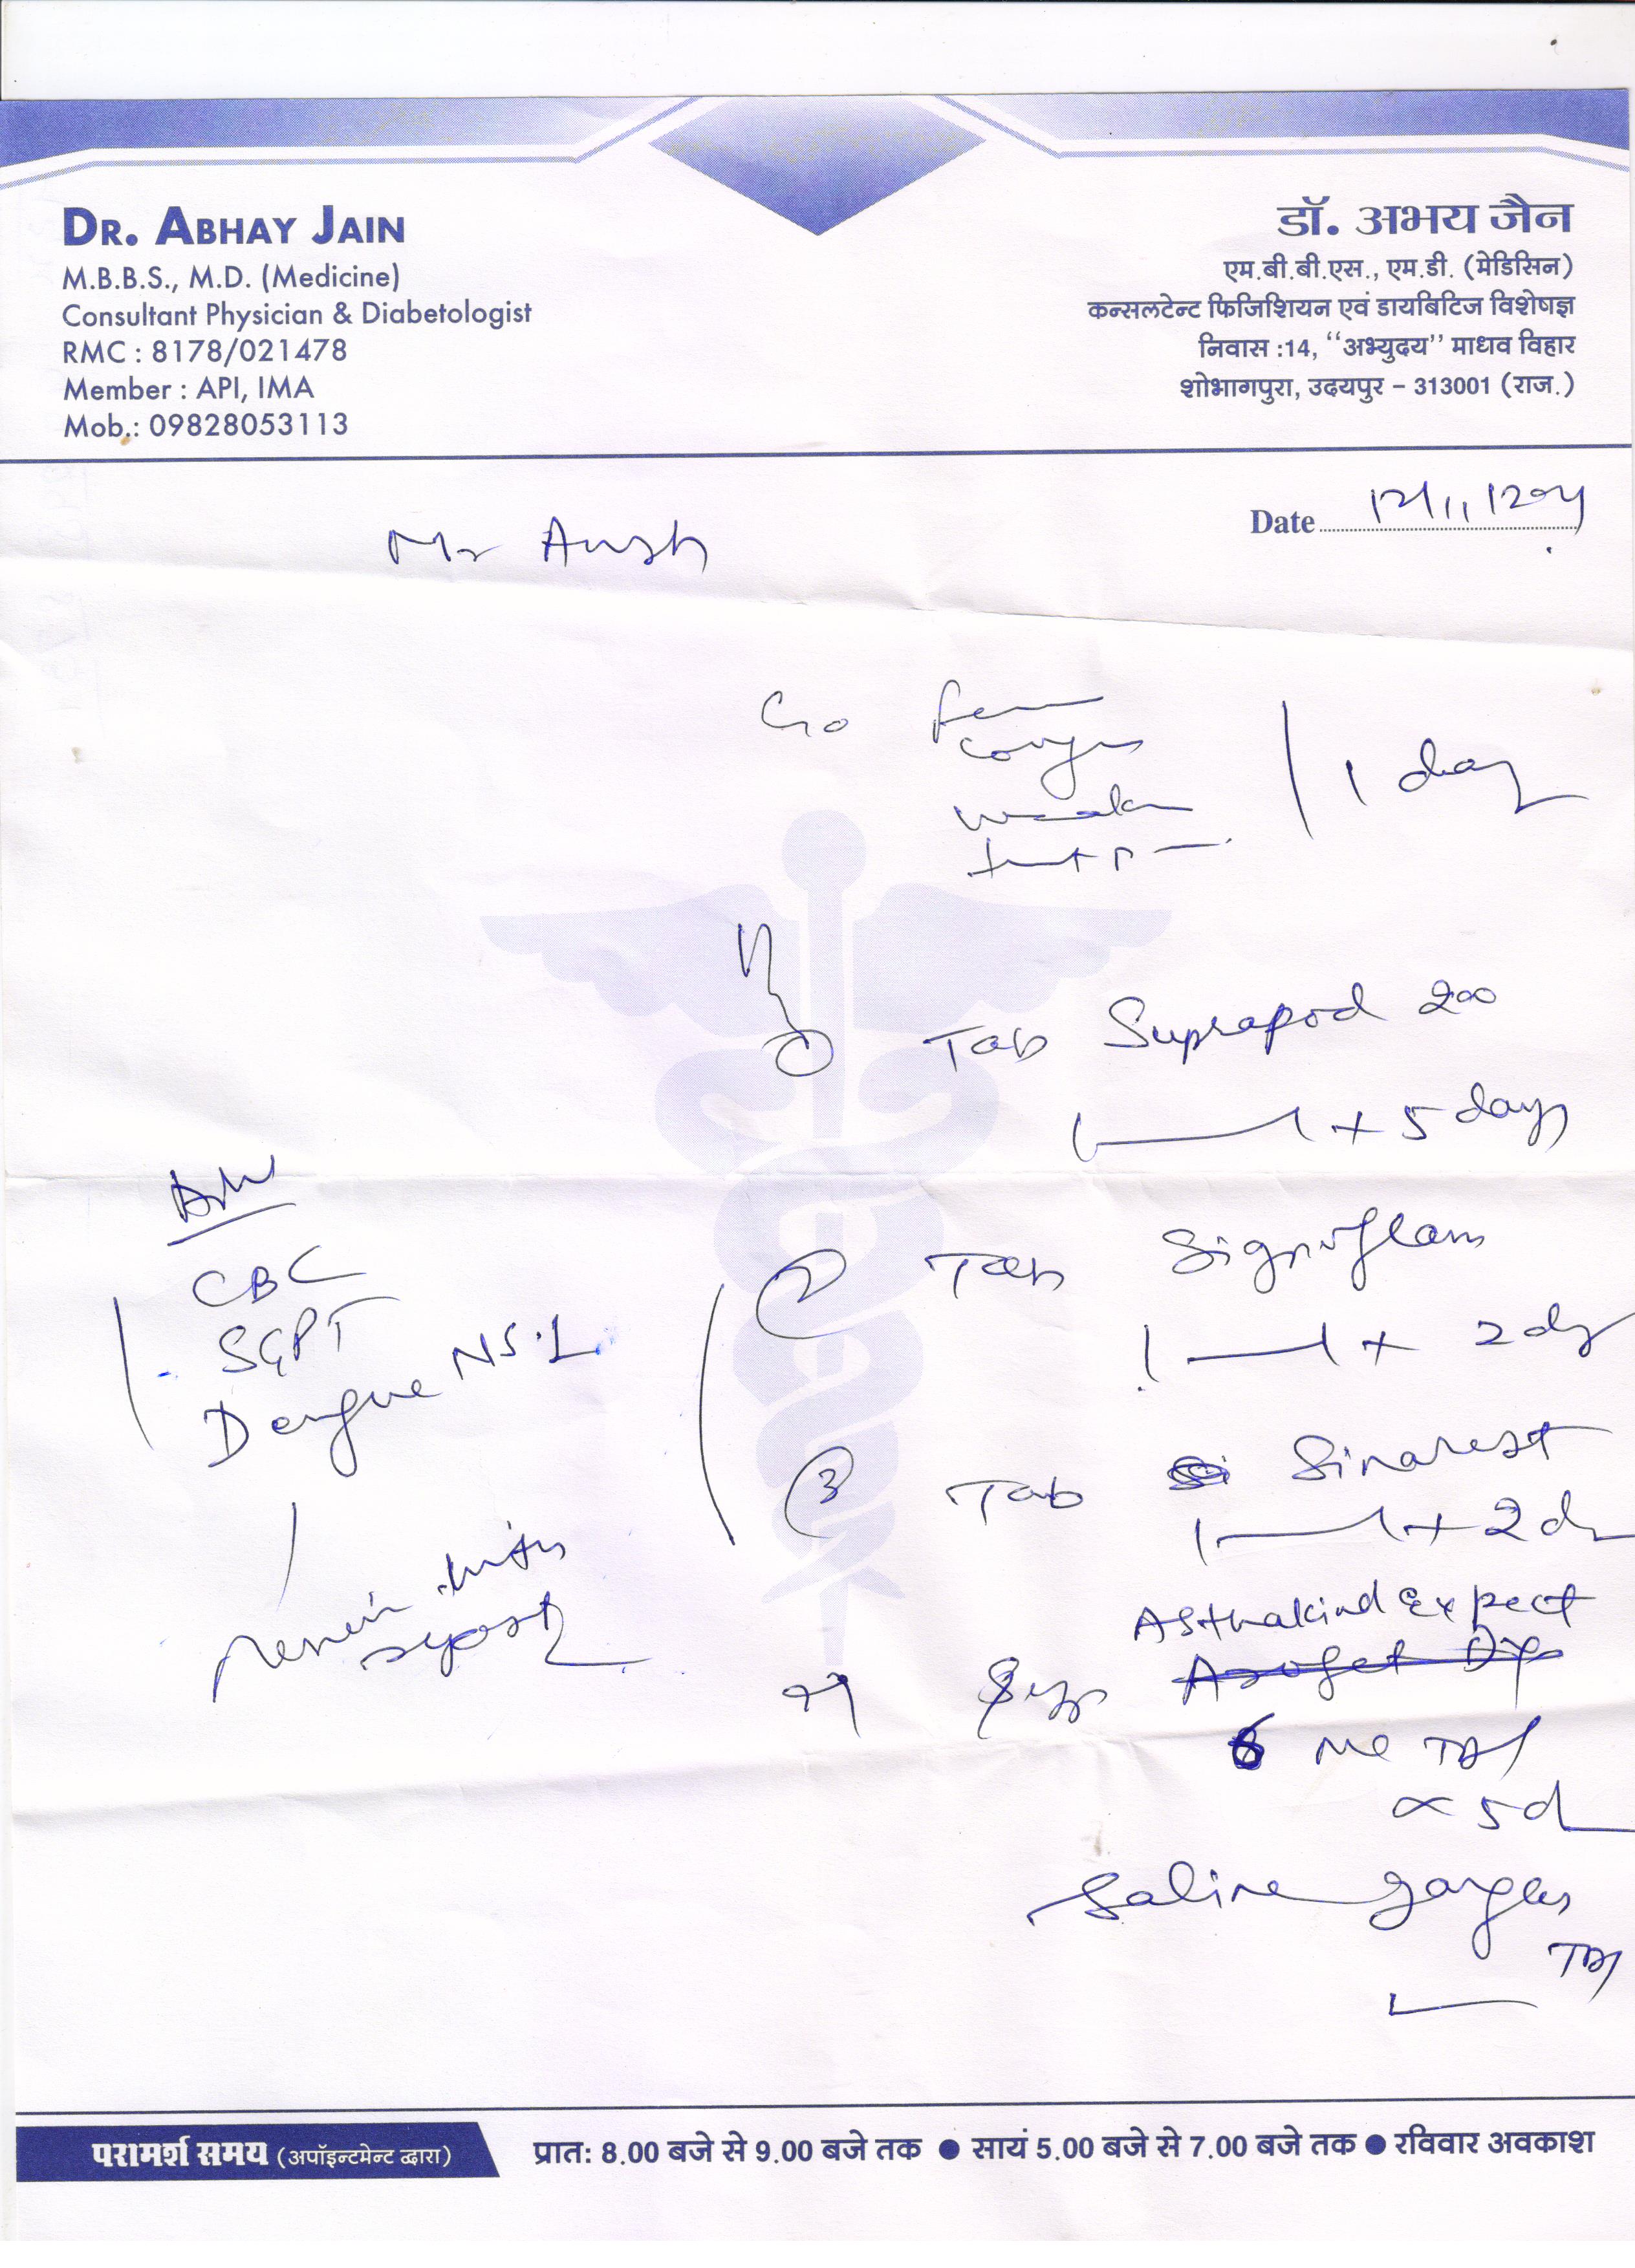 DR. ABHAY JAIN
M.B.B.S., M.D. (Medicine)
Consultant Physician & Diabetologist
RMC : 8178/021478
Member : API, IMA
Mob.: 09828053113
डॉ. अभय जैन
एम.बी.बी.एस., एम.डी. (मेडिसिन)
कन्सलटेन्ट फिजिशियन एवं डायबिटिज विशेषज्ञ
निवास :14, ‘‘अभ्युदय’’ माधव विहार
शोभागपुरा, उदयपुर – 313001 (राज.)
Date
Mr Ansh
C/o
1 day
Tab 200
1 — 1 x 5 days
Adv
CBC
SGPT
Dengue NS-1
review with
reports
2 Tab Signoflam
1 — 1 x 2 d
3 Tab Sinarest
1 — 1 x 2 d
Asthakind Expect
4 Syp
6 ml TDS
x 5d
Saline gargles
TDS
परामर्श समय (अपॉइन्टमेन्ट द्वारा)
प्रात: 8.00 बजे से 9.00 बजे तक ● सायं 5.00 बजे से 7.00 बजे तक ● रविवार अवकाश